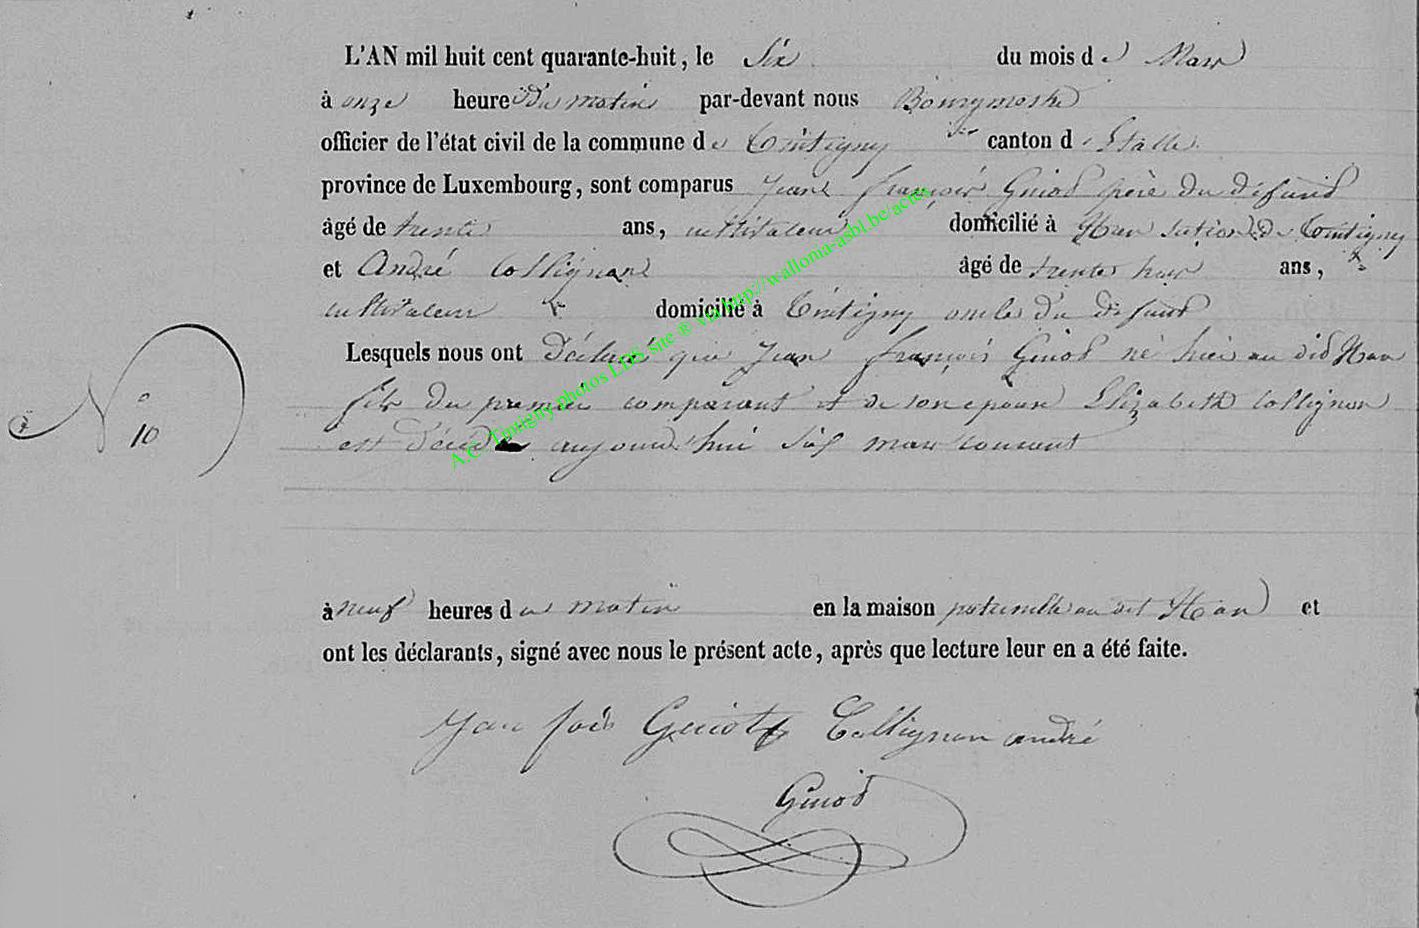 L'AN mil huit cent quarante-huit, le Six du mois de Mars
à onze heures du matin par-devant nous Bourgmestre
officier de l'état civil de la commune de Tintigny canton d'Etalle
province de Luxembourg, sont comparus Jean François Guiot père du défunt
âgé de trente ans, cultivateur domicilié à Han section de Tintigny
et André Collignon âgé de trente huit ans,
cultivateur domicilié à Tintigny oncle du défunt
Lesquels nous ont déclaré que Jean François Guiot né hier au dit Han
fils du premier comparant et de son épouse Elizabeth Collignon
N° 10
est décédé aujourd'hui six mars courant
à neuf heures du matin en la maison paternelle au dit Han et
ont les déclarants, signé avec nous le présent acte, après que lecture leur en a été faite.
Jean fois Guiot Collignon andré
Guiot
A.C. Tintigny photos LDS site ® via http://wallonia-asbl.be/actes